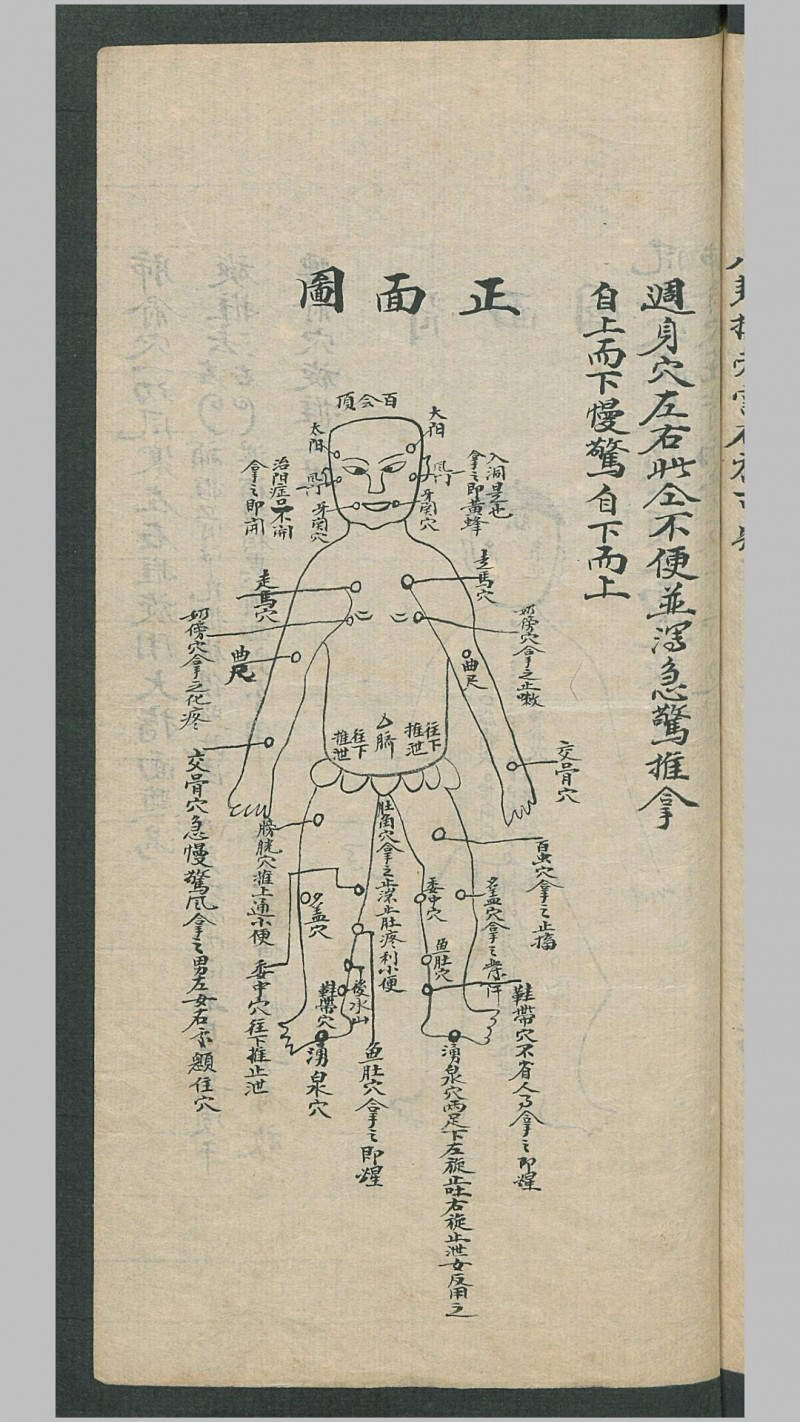 週身穴左右此仝不便並瀉急驚推拿
自上而下慢驚自下而上
正面圖
百会頂
太阳
太阳
風門
風門
牙関穴
牙関穴
入洞是也
拿之即黃蜂
治阳症口不開
拿之即開
走馬穴
走馬穴
奶傍穴拿之止嗽
奶傍穴拿之化疼
曲尺
曲尺
臍
往下
推泄
往下
推泄
交骨穴
交骨穴急慢驚風拿之男左女右
住穴
膀胱穴推上通小便
肚角穴拿之止瀉止肚疼利小便
百虫穴拿之止搐
委中穴
委中穴往下推止泄
魚肚穴
鱼肚穴拿之即醒
後水山
鞋帶穴
鞋帶穴不省人事拿之即醒
湧泉穴
湧泉穴両足下左旋止吐右旋止泄女反用之